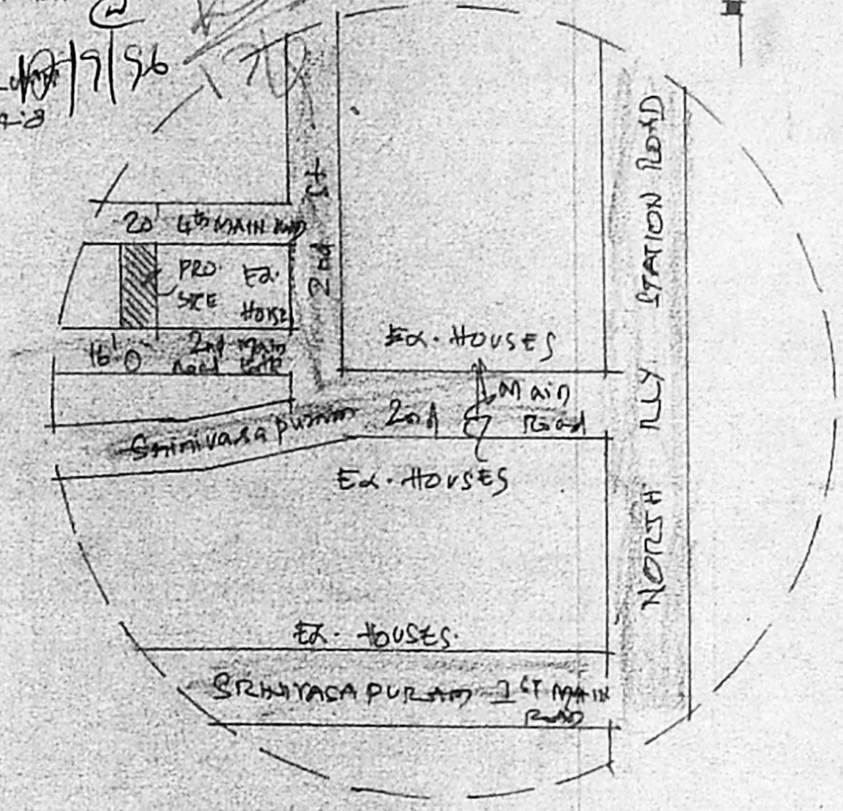 9/96
20' 4th MAIN
PRO. SITE
EX. HOUSE
16'0
2nd Main
2nd St
EX. HOUSES
Srinivasapuram 2nd Main Road
EX. HOUSES
EX. HOUSES
SRINIVASAPURAM 1ST MAIN ROAD
NORTH RLY STATION ROAD